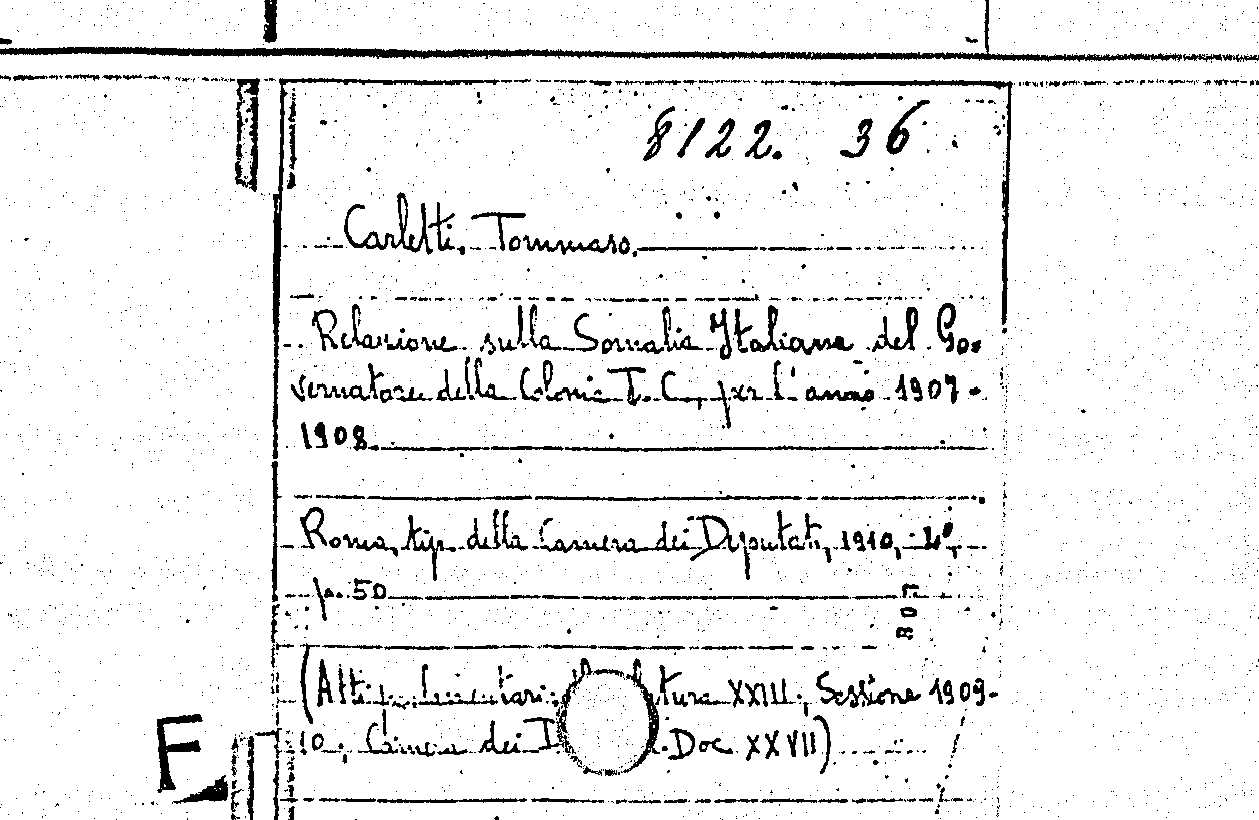 8122. 36
Carletti, Tommaso.
Relazione sulla Somalia Italiana del Go-
vernatore della Colonia T. C., per l'anno 1907-
1908
Roma, tip. della Camera dei Deputati, 1910, 4°,
p. 50
807
(Atti XXIII, Sessione 1909-
10, Camera dei Doc XXVII)
F